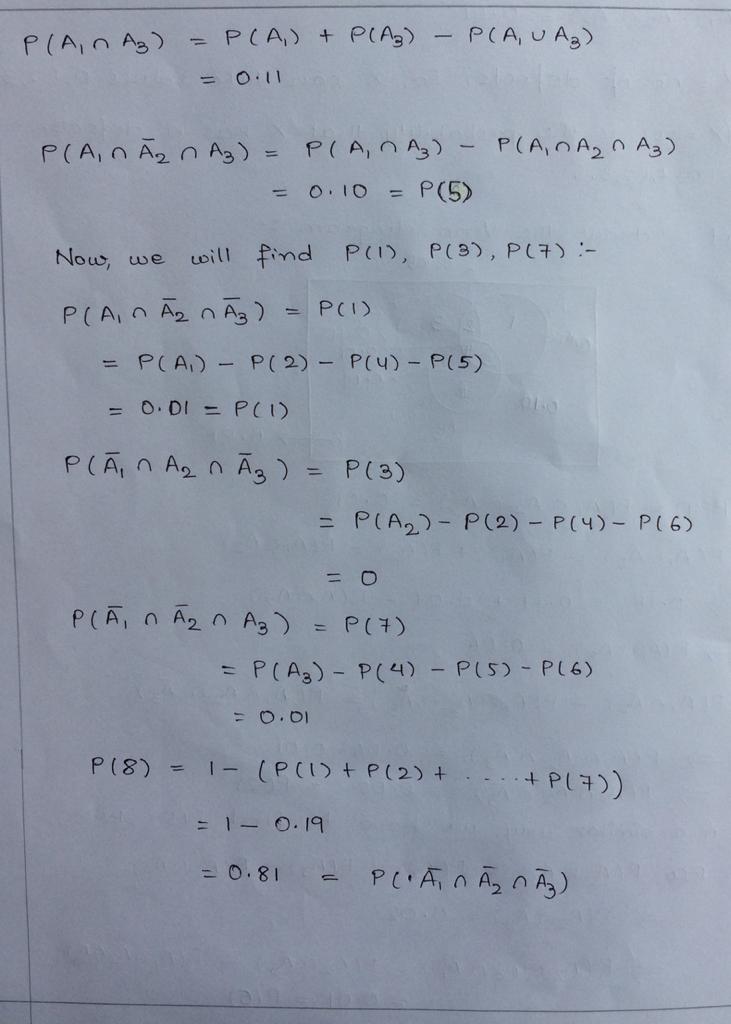 P(A₁ ∩ A₃) = P(A₁) + P(A₃) – P(A₁ ∪ A₃)
= 0.11
P(A₁ ∩ Ā₂ ∩ A₃) = P(A₁ ∩ A₃) – P(A₁ ∩ A₂ ∩ A₃)
= 0.10 = P(5)
Now, we will find P(1), P(3), P(7) :-
P(A₁ ∩ Ā₂ ∩ Ā₃) = P(1)
= P(A₁) – P(2) – P(4) – P(5)
= 0.01 = P(1)
P(Ā₁ ∩ A₂ ∩ Ā₃) = P(3)
= P(A₂) – P(2) – P(4) – P(6)
= 0
P(Ā₁ ∩ Ā₂ ∩ A₃) = P(7)
= P(A₃) – P(4) – P(5) – P(6)
= 0.01
P(8) = 1 – (P(1) + P(2) + ..... + P(7))
= 1 – 0.19
= 0.81 = P(Ā₁ ∩ Ā₂ ∩ Ā₃)